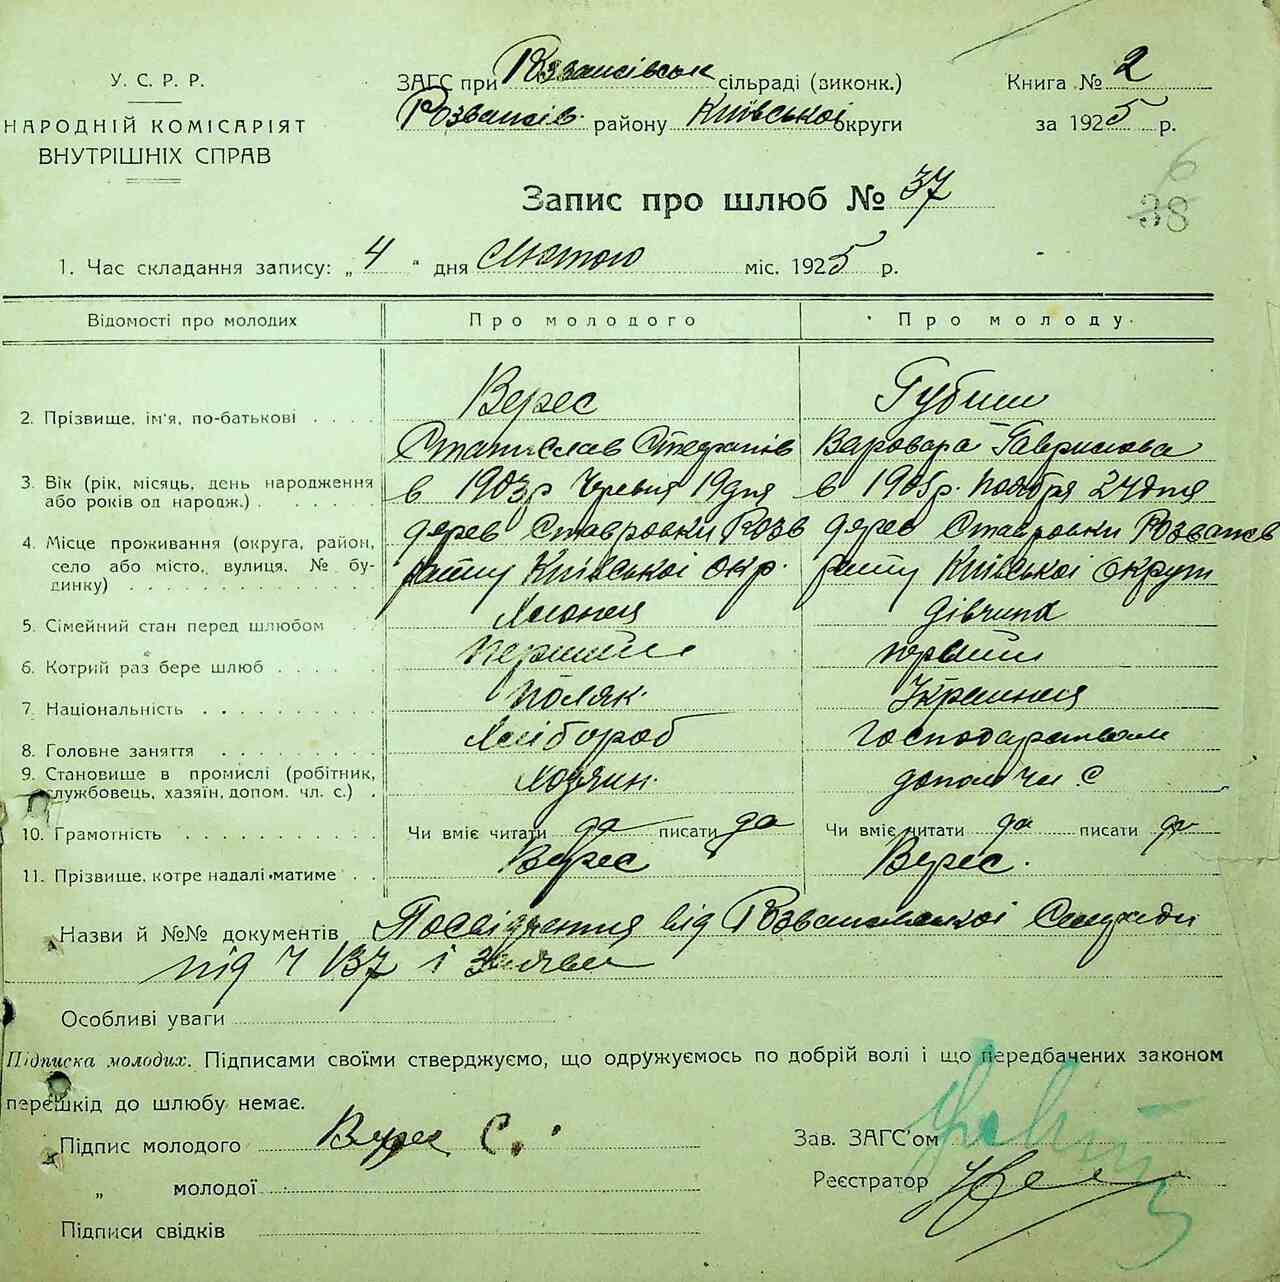 У. С. Р. Р.
НАРОДНІЙ КОМІСАРІЯТ
ВНУТРІШНІХ СПРАВ
ЗАГС при Розважівськ сільраді (виконк.)
Розважів. району Київської округи
Книга № 2
за 1925 р.
Запис про шлюб № 37
6
38
1. Час складання запису: „ 4 " дня Лютого міс. 1925 р.
Відомості про молодих Про молодого Про молоду
2. Прізвище, ім'я, по-батькові . . . . Верес Губиш
Станіслав Стефанів Варовара Гаврилова
3. Вік (рік, місяць, день народження або років од народж.) . в 1903р Червня 19 дня в 1905р. Ноября 24 дня
4. Місце проживання (округа, район, село або місто, вулиця, № будинку) дерев Ставровки Розв дерев Ставровки Розважев
району Київської окр. району Київської округи
5. Сімейний стан перед шлюбом дівчина
6. Котрий раз бере шлюб . . . . Перший первий
7. Національність . . . . Поляк Украинка
8. Головне заняття . . . . Хлібороб господарством
9. Становище в промислі (робітник, службовець, хазяїн, допом. чл. с.) . Хозяин. допом чл. С
10. Грамотність . . . . Чи вміє читати да писати да Чи вміє читати да писати да
11. Прізвище, котре надалі матиме . . Верес Верес.
Назви й №№ документів Посвідчення від Розважевської Сельради
під Ч 137 і
Особливі уваги
Підписка молодих. Підписами своїми стверджуємо, що одружуємось по добрій волі і що передбачених законом
перешкід до шлюбу немає.
Підпис молодого Верес С.
„ молодої
Підписи свідків
Зав. ЗАГС'ом
Реєстратор